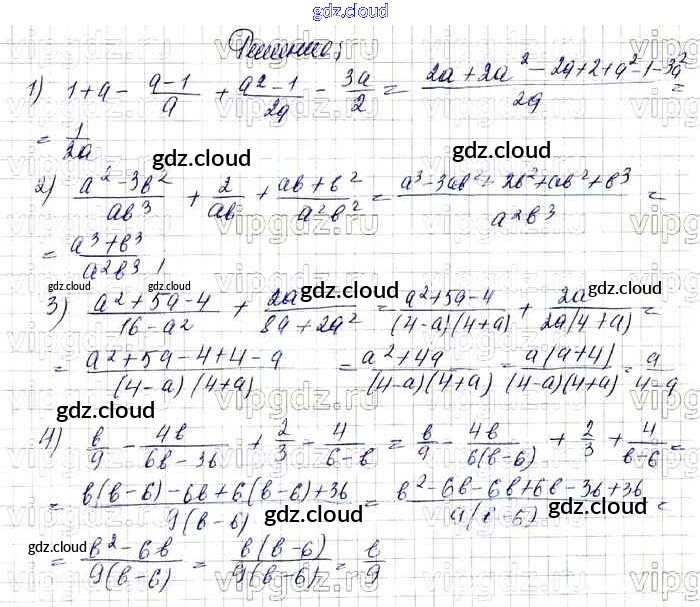 gdz.cloud
Решение;
1) 1+a - (a-1)/a + (a²-1)/2a - 3a/2 = (2a+2a²-2a+2+a²-1-3a²)/2a =
= 1/2a
gdz.cloud gdz.cloud
2) (a²-3b²)/ab³ + 2/ab + (ab+b²)/a²b² = (a³-3ab²+2b²+ab²+b³)/a²b³ =
= (a³+b³)/a²b³ !
gdz.cloud gdz.cloud gdz.cloud gdz.cloud
3) (a²+5a-4)/(16-a²) + 2a/(8a+2a²) = (a²+5a-4)/((4-a)(4+a)) + 2a/(2a(4+a)) =
= (a²+5a-4+4-a)/((4-a)(4+a)) = (a²+4a)/((4-a)(4+a)) = a(a+4)/((4-a)(4+a)) = a/(4-a)
gdz.cloud gdz.cloud
4) b/9 - 4b/(6b-36) + 2/3 - 4/(6-b) = b/9 - 4b/(6(b-6)) + 2/3 + 4/(b-6) =
= (b(b-6)-6b+6(b-6)+36)/(9(b-6)) = (b²-6b-6b+6b-36+36)/(9(b-6)) =
gdz.cloud gdz.cloud
gdz.cloud
= (b²-6b)/(9(b-6)) = b(b-6)/(9(b-6)) = b/9